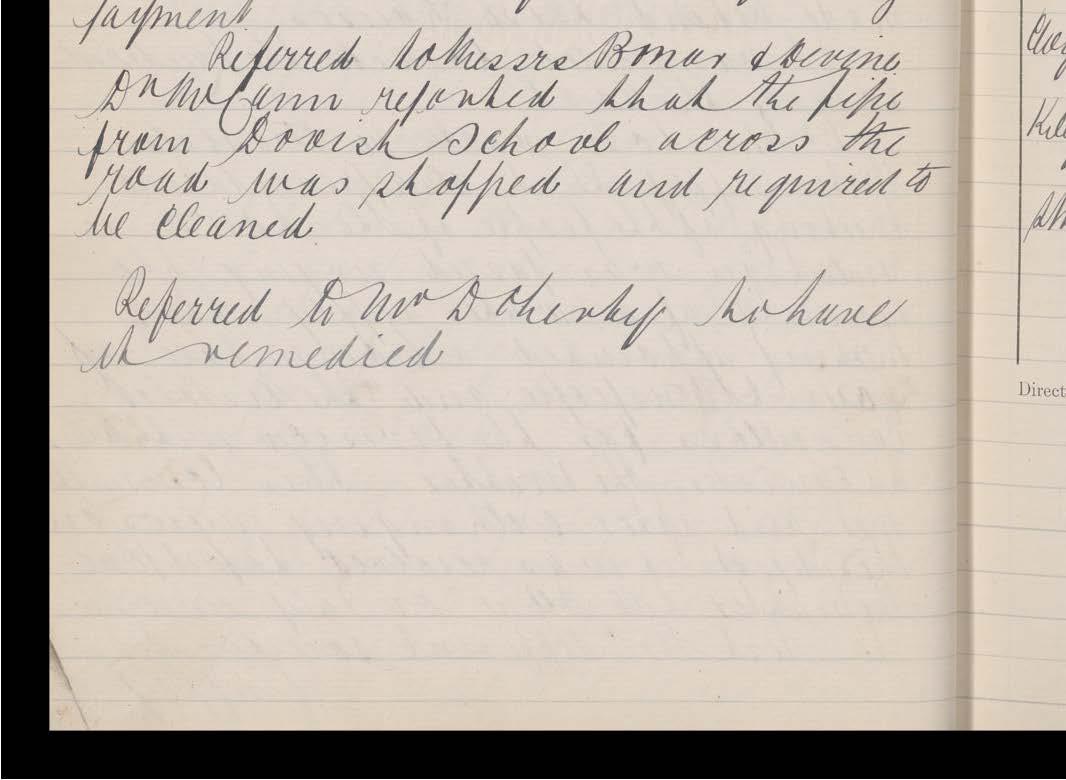 payment
Referred to Messrs Bonar & Devine
Dr McCann reported that the pipe
from Dooish School across the
road was stopped and required to
be cleaned
Referred to Mr Doherty to have
it remedied
Direct